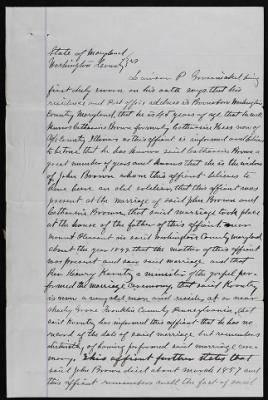 State of Maryland
Washington County } ss
Lawson P. being
first duly sworn on his oath says that his
residence and Post office address is Brownsburg Washington
County Maryland, that he is 45 years of age that he well
knows Catharine Brown formerly Catharine of
County Illinois as this affiant is informed and believes
to be true, that he has known said Catharine Brown a
great number of years and knows that she is the widow
of John Brown whom this affiant believes to
have been an old soldier, that this affiant was
present at the marriage of said John Brown and
Catharine Brown that said marriage took place
at the house of the father of this affiant near
mount Pleasant in said Washington County Maryland
about the year 18 that the mother of this affiant
was present and saw said marriage and that
Rev Henry a minister of the gospel per-
formed the marriage ceremony, that said
is now a very old man and resides at or near
Grove Franklin County Pennsylvania, that
said has informed this affiant that he has no
record of the date of said marriage but remembers
distinctly of having performed said marriage cere-
mony. This affiant further states that
said John Brown died about March 1887 and
this affiant remembers well the fact of said